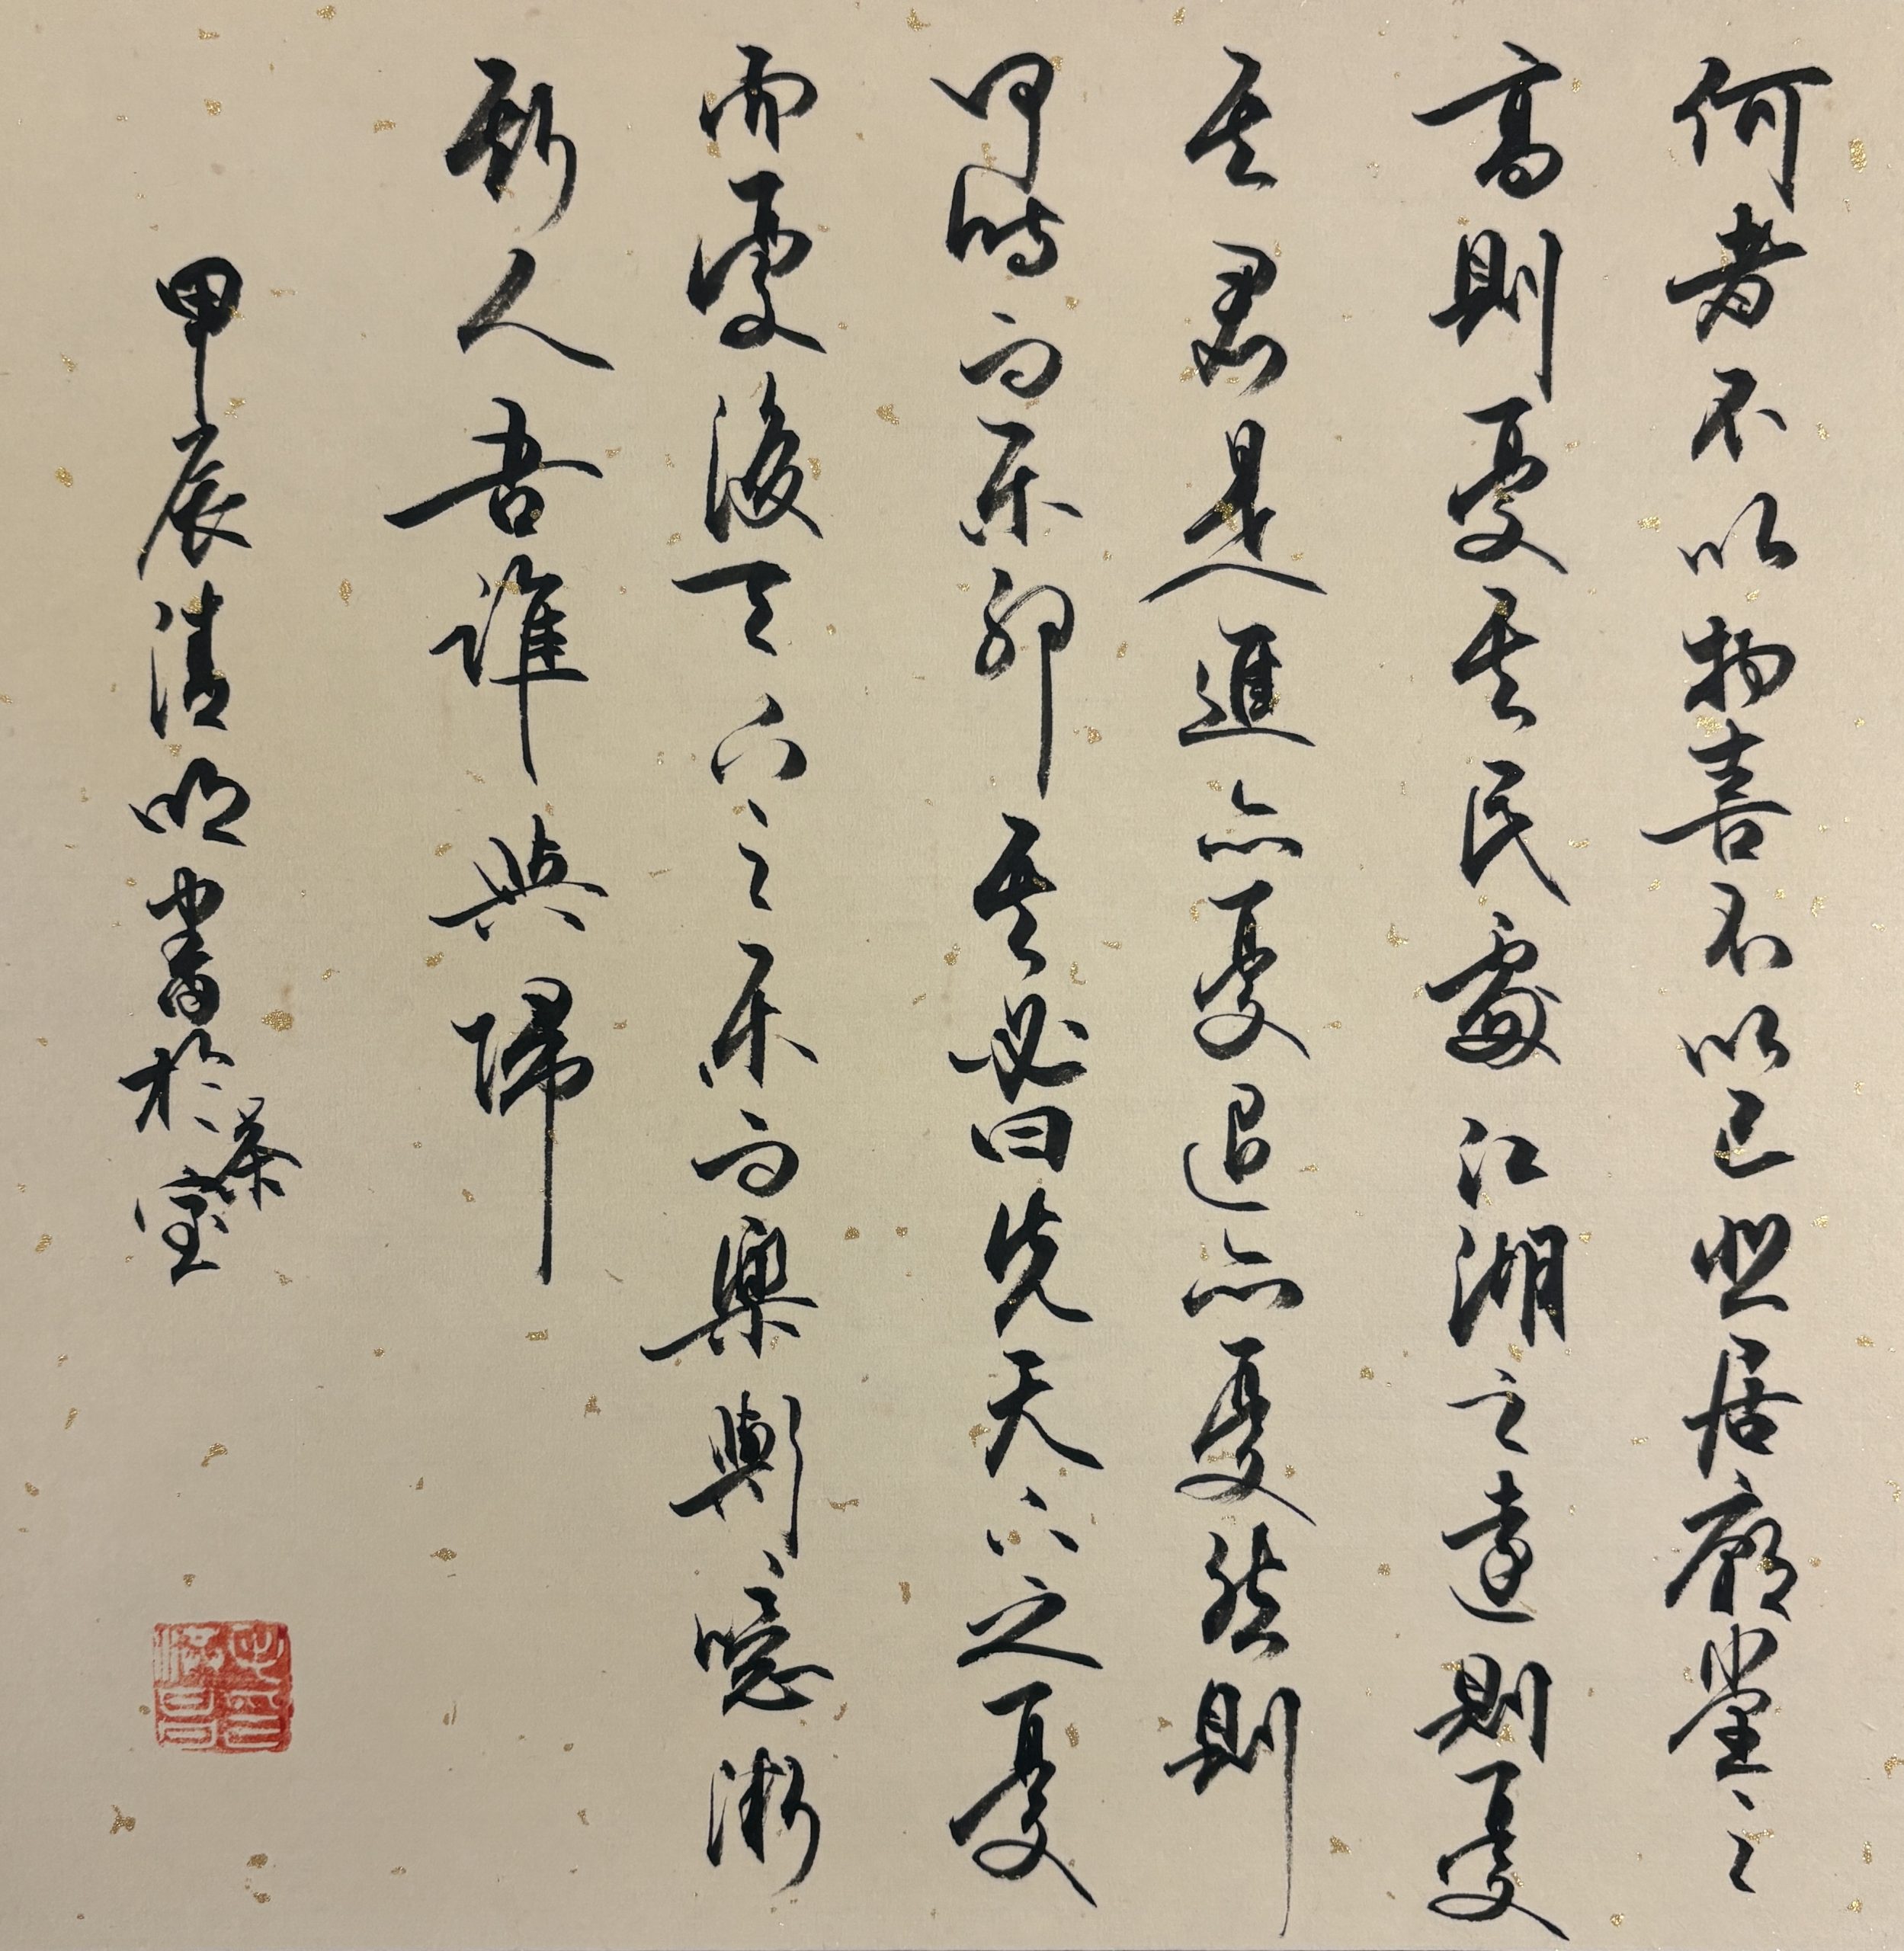 何者不以物喜不以己悲居廟堂之
高則憂其民處江湖之遠則憂
其君是進亦憂退亦憂然則
何時而乐耶其必曰先天下之憂
而憂後天下之乐而樂歟噫微
斯人吾誰與歸
甲辰清明書於茶室